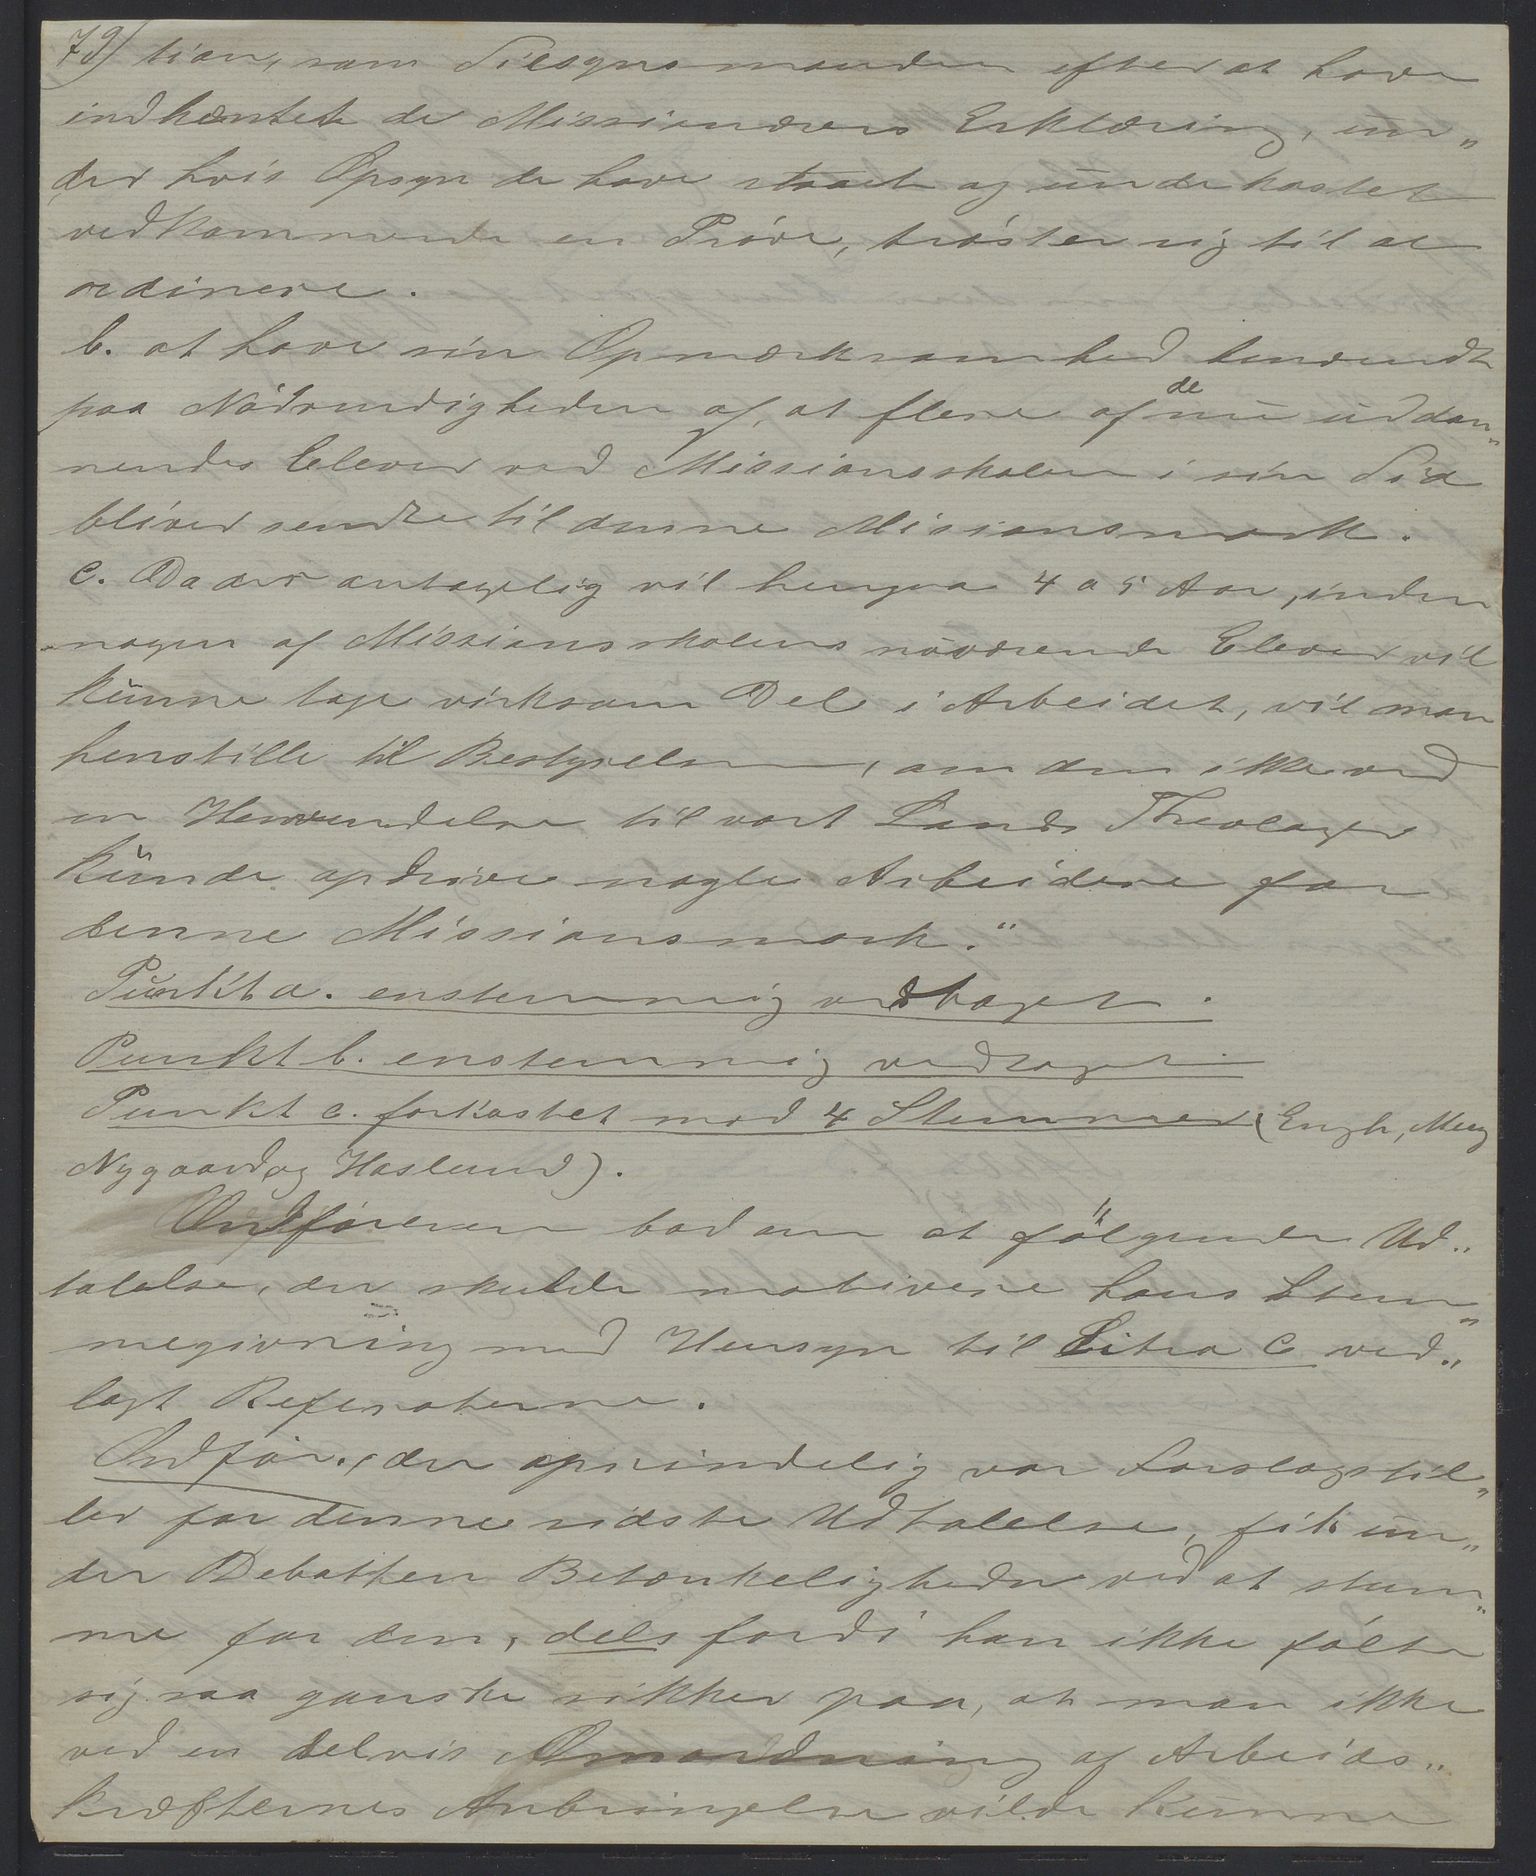 79) tion, som Tilsynsmanden efter at have
indhentet de Missionærers Erklæring, un„
der hvis Opsyn de have staaet og underkastet
vedkommende en Prøve, trøster sig til at
ordinere.
b. at have sin Opmærksomhed henvendt
paa Nødvendigheden af, at flere af de nu uddan„
nendes Elever ved Missionsskolen i sin Tid
bliver sendte til denne Missionsmark.
c. Da der antagelig vil hengaa 4 a 5 Aar, inden
nogen af Missionsskolens nuværende Elever vil
kunne tage virksom Del i Arbeidet, vil man
henstille til Bestyrelsen, om den ikke ved
en Henvendelse til vort Lands Theologer
kunde opdrive nogle Arbeidere for
denne Missionsmark."
Punkt a. enstemmig vedtaget.
Punkt b. enstemmig vedtaget.
Punkt c. forkastet mod 4 Stemmer (Engh, Meeg
Nygaard og Haslund).
Ordføreren bad om at følgende Ud„
talelse, der skulde motivere hans Stem„
megivning med Hensyn til Litra C ved„
lagt Referaterne.
Ordfør., der oprindelig var Forslagstil„
ler for denne sidste Udtalelse, fik un„
der Debatten Betænkeligheder ved at stem„
me for den, dels fordi han ikke følte
sig saa ganske sikker paa, at man ikke
ved en delvis Omordning af Arbeids„
kræfternes Anbringelse vilde kunne